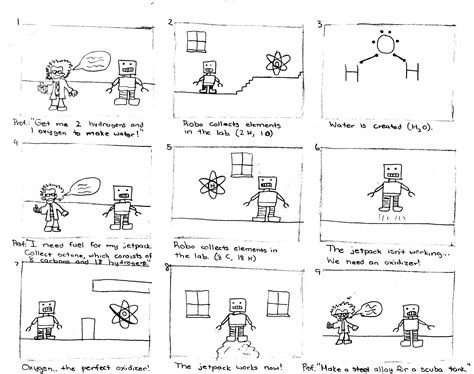 1
2
3
Prof: "Get me 2 hydrogens and
1 oxygen to make water!"
Robo collects elements
in the lab (2 H, 1 O)
H H
Water is created (H₂O).
4
5
6
Prof: I need fuel for my jetpack.
Collect octane, which consists of
8 carbons and 18 hydrogens."
Robo collects elements in
the lab. (8 C, 18 H)
The jetpack isn't working...
We need an oxidizer!
7
8
9
Oxygen.. the perfect oxidizer!
The jetpack works now!
Prof: "Make a steel alloy for a scuba tank"